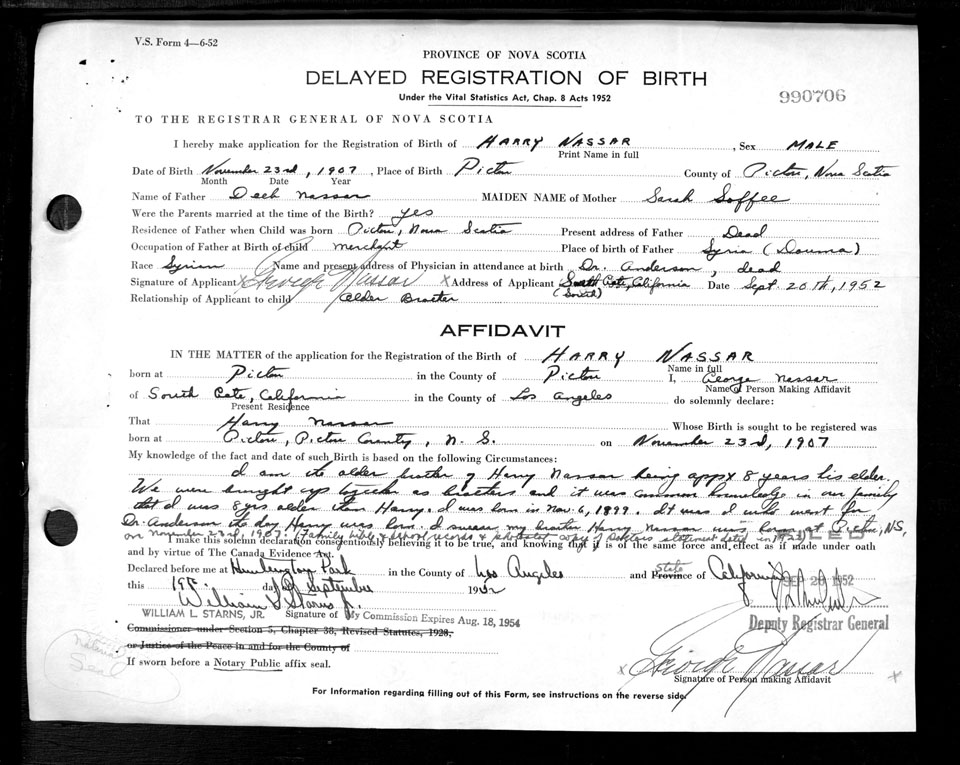 V.S. Form 4—6-52
PROVINCE OF NOVA SCOTIA
DELAYED REGISTRATION OF BIRTH
Under the Vital Statistics Act, Chap. 8 Acts 1952
990706
TO THE REGISTRAR GENERAL OF NOVA SCOTIA
I hereby make application for the Registration of Birth of HARRY NASSAR, Sex MALE
Print Name in full
Date of Birth November 23rd, 1907, Place of Birth Pictou County of Pictou, Nova Scotia
Month Date Year
Name of Father Deeb Nassar MAIDEN NAME of Mother Sarah Soffee
Were the Parents married at the time of the Birth? yes
Residence of Father when Child was born Pictou, Nova Scotia Present address of Father Dead
Occupation of Father at Birth of child merchant Place of birth of Father Syria (Douma)
Race Syrian Name and present address of Physician in attendance at birth Dr. Anderson, dead
Signature of Applicant x George Nassar x Address of Applicant South Gate, California Date Sept. 20th, 1952
(South)
Relationship of Applicant to child older Brother
AFFIDAVIT
IN THE MATTER of the application for the Registration of the Birth of HARRY NASSAR
Name in full
born at Pictou in the County of Pictou I, George Nassar
Name of Person Making Affidavit
of South Gate, California in the County of Los Angeles do solemnly declare:
Present Residence
That Harry Nassar Whose Birth is sought to be registered was
born at Pictou, Pictou County, N.S. on November 23rd, 1907
My knowledge of the fact and date of such Birth is based on the following Circumstances:
I am the older brother of Harry Nassar being appx 8 years his elder.
We were brought up together as brothers and it was common knowledge in our family
that I was 8 yrs older than Harry. I was born in Nov. 6, 1899. It was I who went for
Dr. Anderson the day Harry was born. I swear my brother Harry Nassar was born at Pictou, NS,
on November 23rd, 1907. (Family bible & school records & photostat copy of Doctors statement dated in 1921)
FILED
I make this solemn declaration conscientiously believing it to be true, and knowing that it is of the same force and effect as if made under oath
and by virtue of The Canada Evidence Act.
Declared before me at Huntington Park in the County of Los Angeles and Province of California
State
SEP 26 1952
this 19th day of September 1952
William L Starns Jr.
WILLIAM L. STARNS, JR. Signature of My Commission Expires Aug. 18, 1954
Deputy Registrar General
Commissioner under Section 5, Chapter 38, Revised Statutes, 1923,
or Justice of the Peace in and for the County of
If sworn before a Notary Public affix seal.
Notarial
Seal
x George Nassar
Signature of Person making Affidavit
For Information regarding filling out of this Form, see instructions on the reverse side.